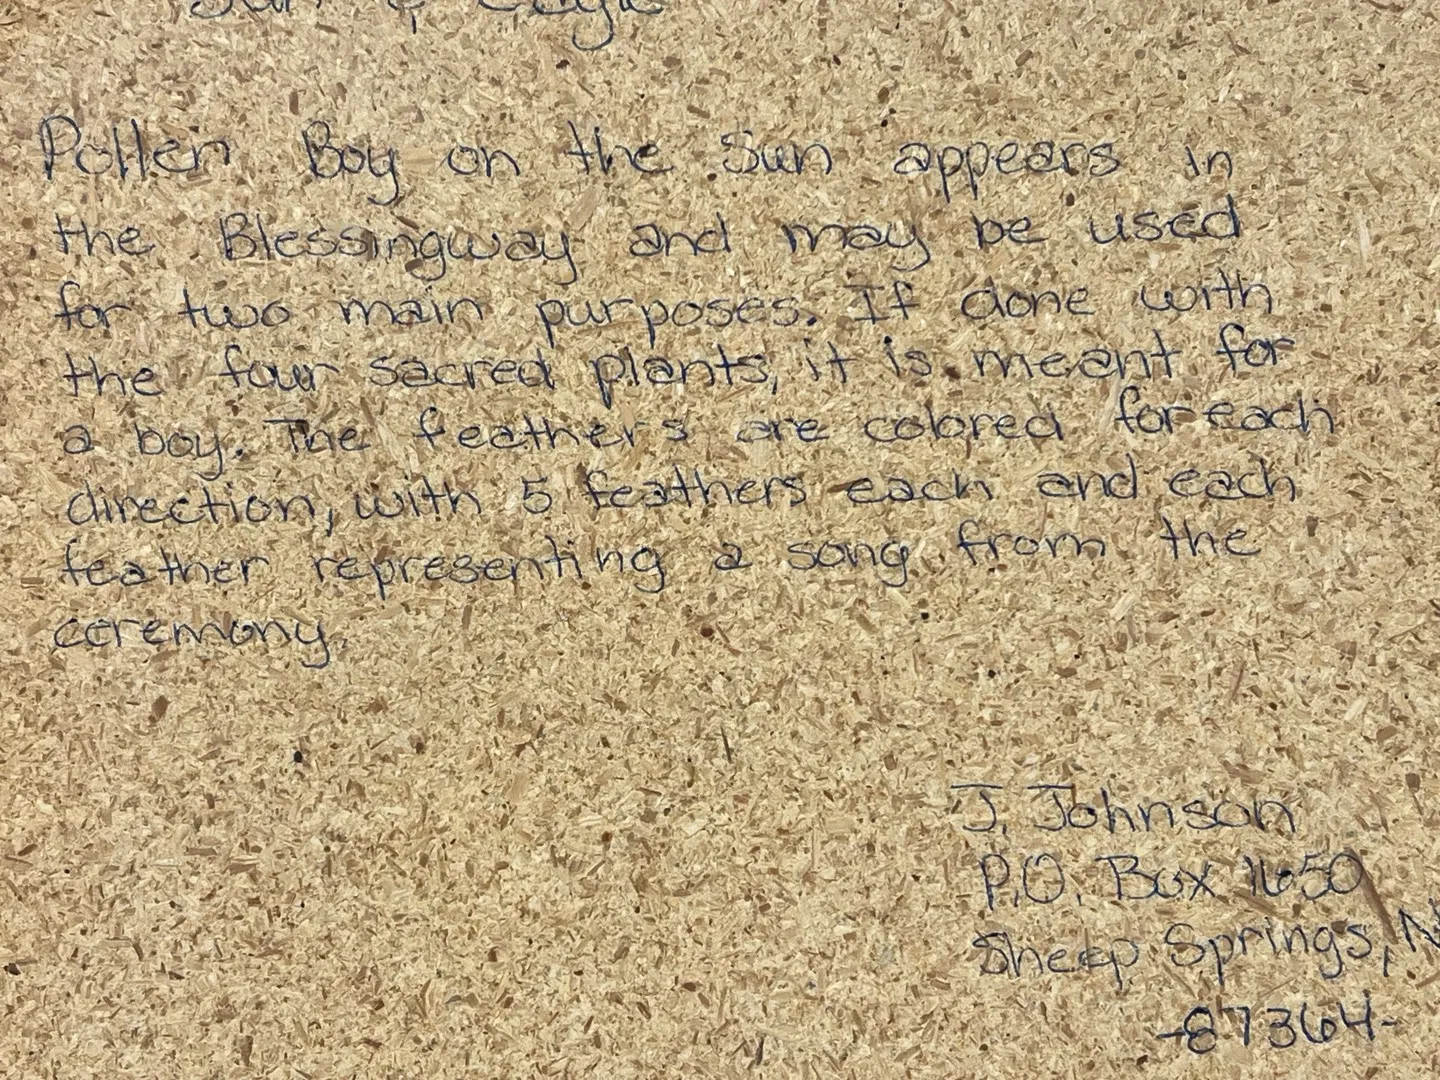 Sun & Eagle
Pollen Boy on the Sun appears in
the Blessingway and may be used
for two main purposes. If done with
the four sacred plants, it is meant for
a boy. The feathers are colored for each
direction, with 5 feathers each and each
feather representing a song from the
ceremony.
J. Johnson
P.O. Box 1650
Sheep Springs, N
-87364-